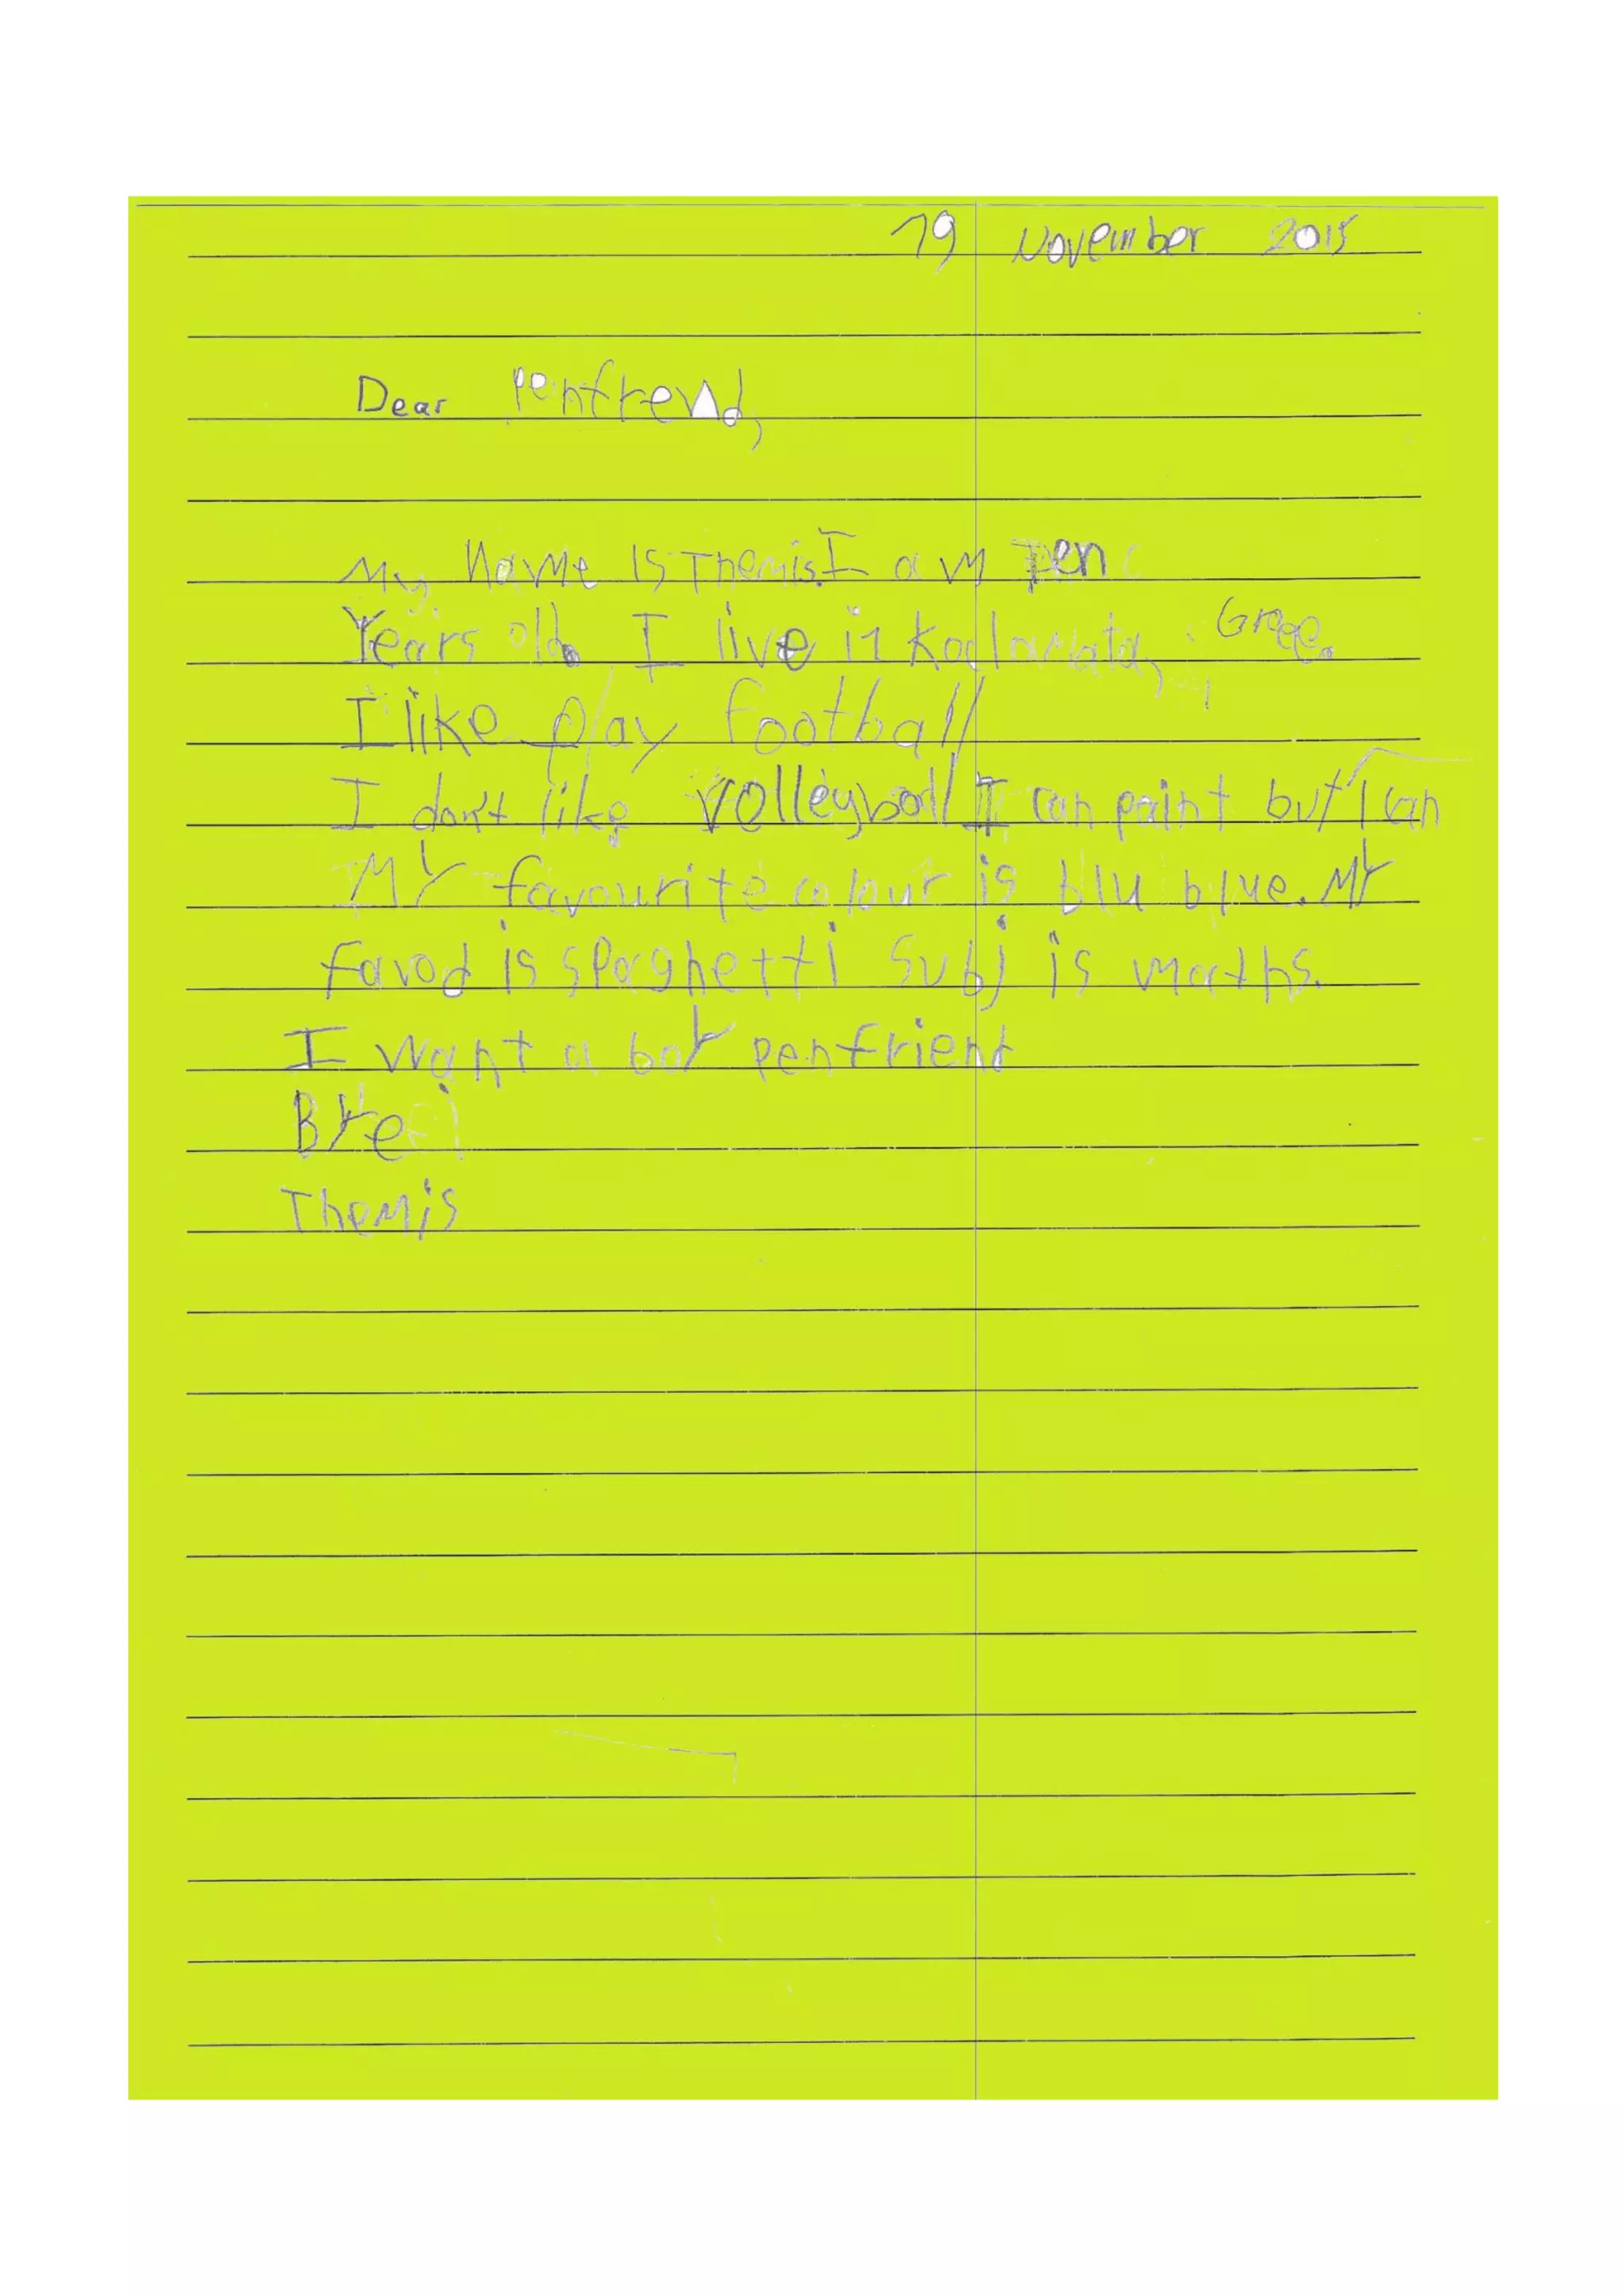 19 November 2015
Dear penfrend,
My name is Themis. I am Ten
Years old. I live in Kaalamata, Greee.
I like play football
I don't like volleyball I can paint but I can
MY favourite colour is blu blue. MY
favod is spaghetti Subj is maths.
I want a boY penfrient
BYe
Themis